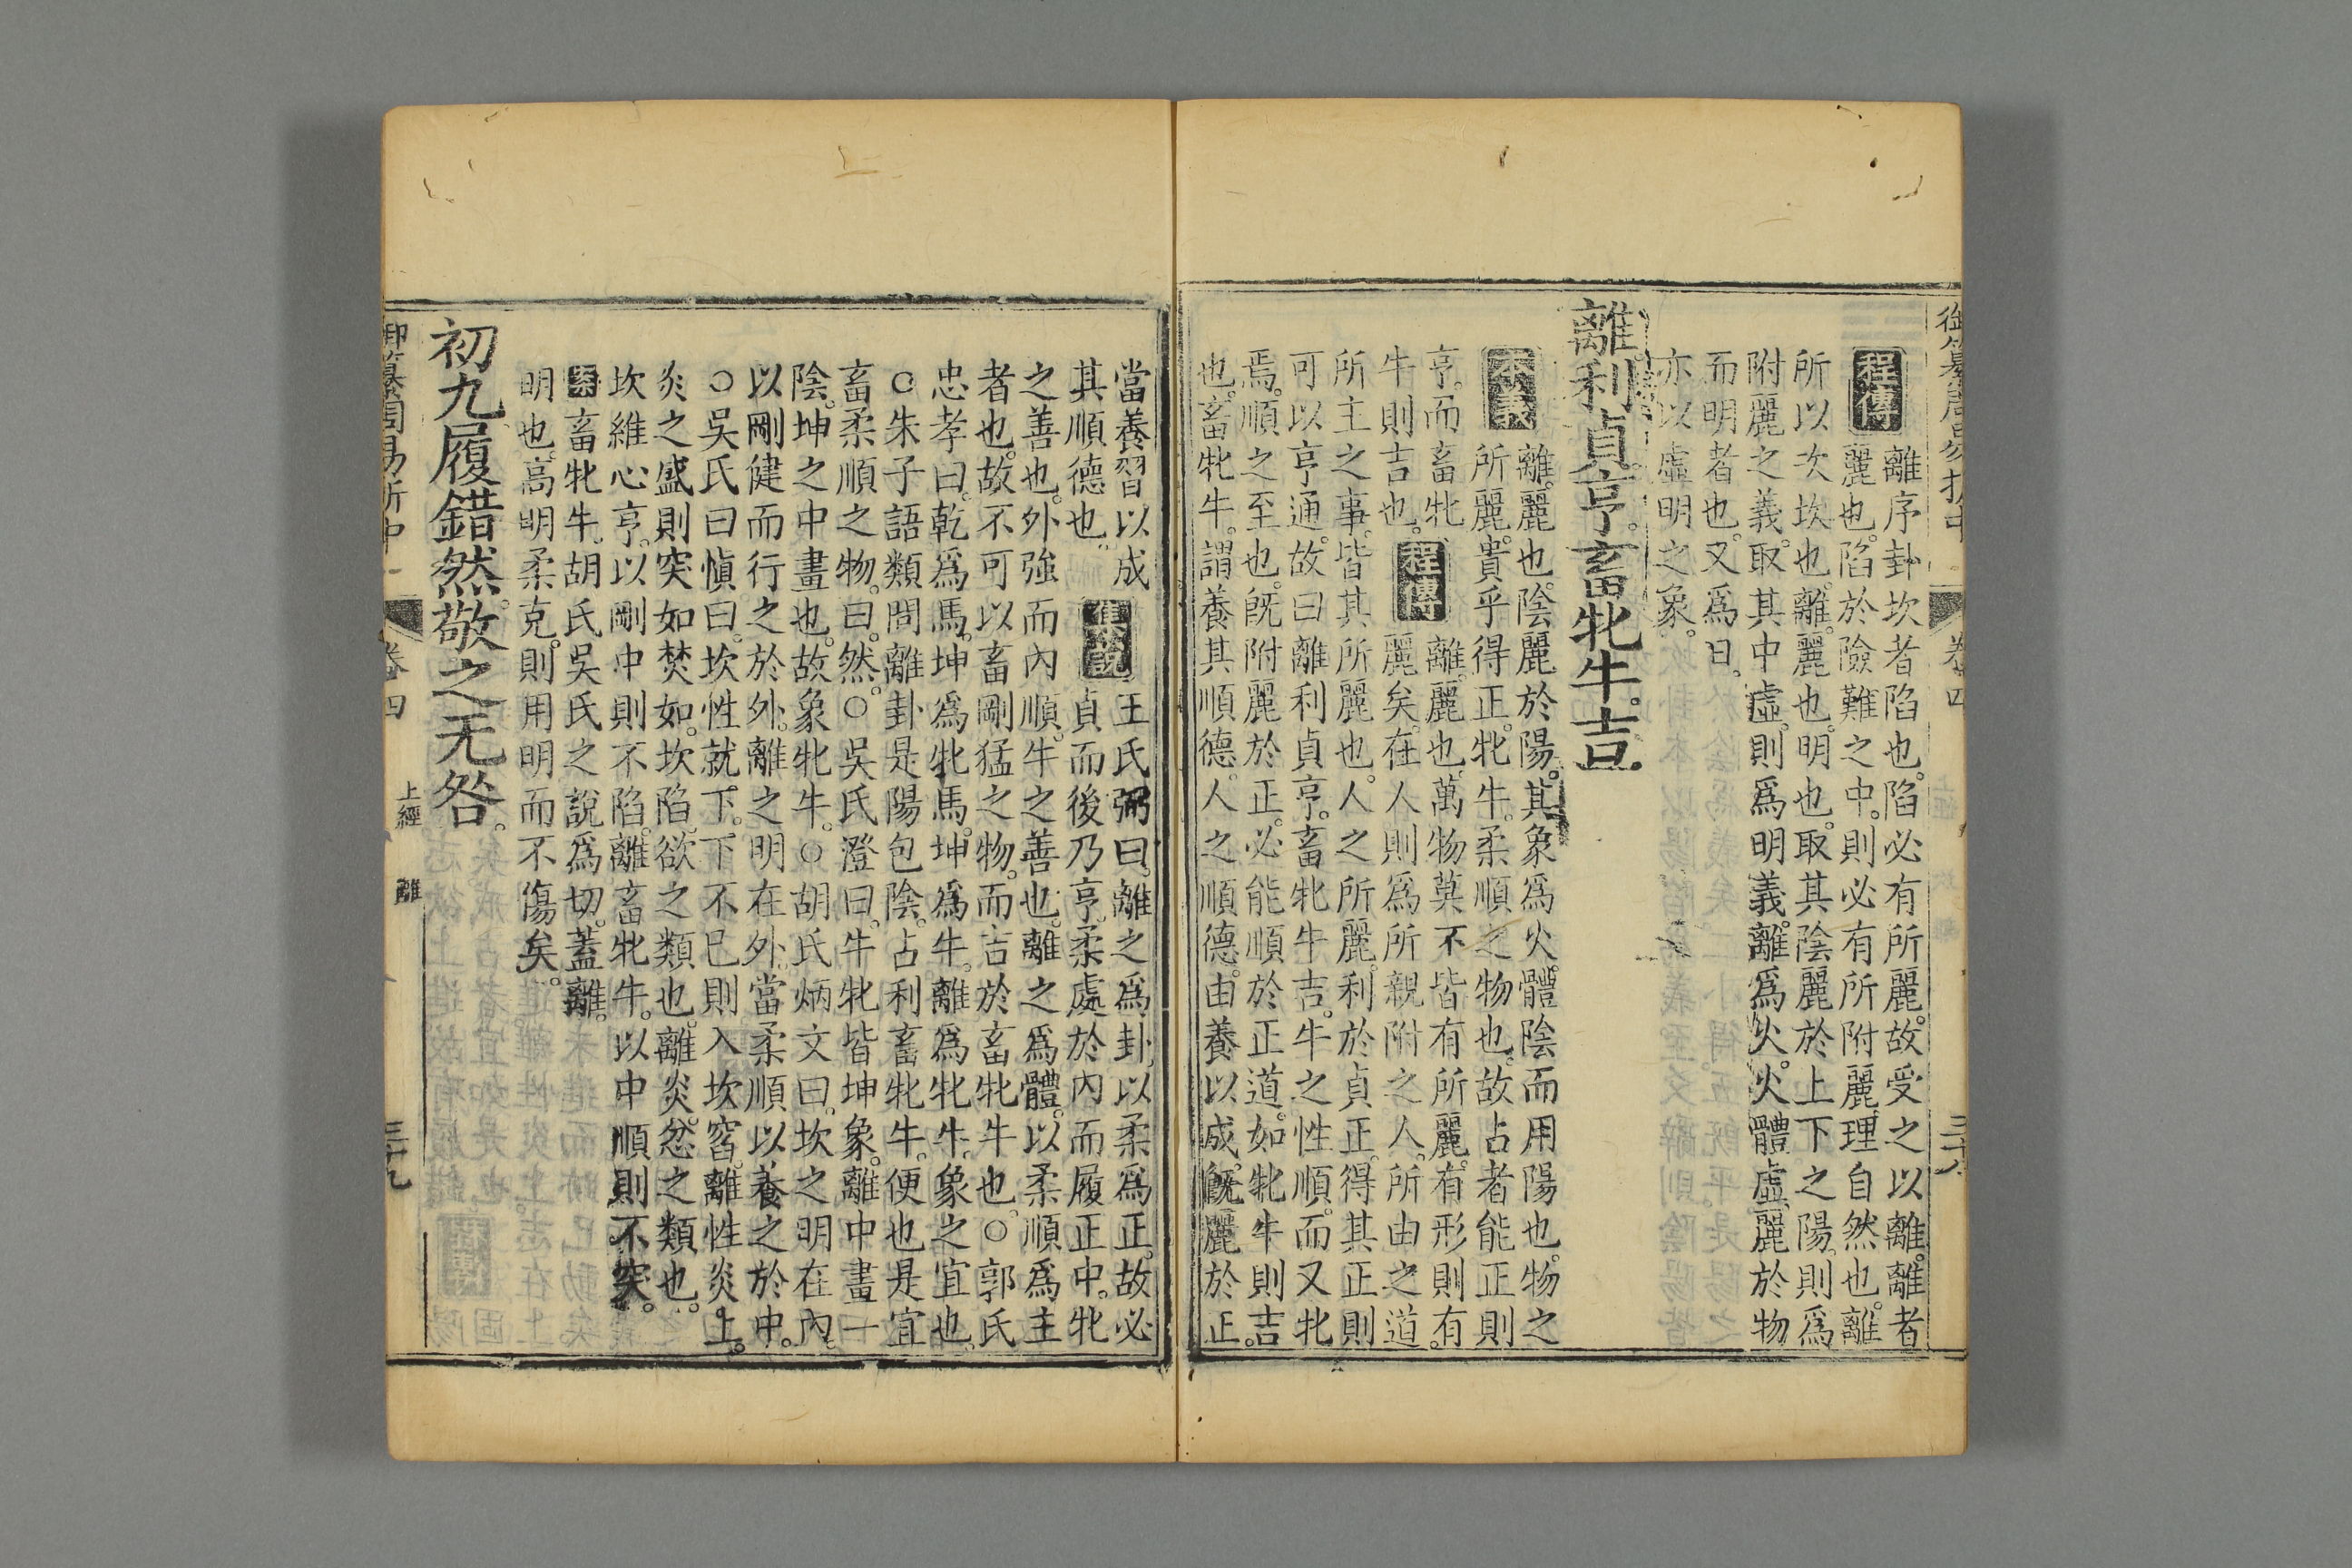 御纂周易折中 卷四 三十八
程傳 離序卦坎者陷也。陷必有所麗。故受之以離。離者
麗也。陷於險難之中。則必有所附麗。理自然也。離
所以次坎也。離。麗也。明也。取其陰麗於上下之陽。則爲
附麗之義。取其中虛。則爲明義。離爲火。火體虛。麗於物
而明者也。又爲日。
亦以虛明之象。
離利貞亨。畜牝牛。吉。
本義 離。麗也。陰麗於陽。其象爲火。體陰而用陽也。物之
所麗。貴乎得正。牝牛。柔順之物也。故占者能正則
亨。而畜牝
牛則吉也。
程傳 離。麗也。萬物莫不皆有所麗。有形則有
麗矣。在人則爲所親附之人。所由之道。
所主之事。皆其所麗也。人之所麗。利於貞正。得其正則
可以亨通。故曰離利貞亨。畜牝牛吉。牛之性順。而又牝
焉。順之至也。旣附麗於正。必能順於正道。如牝牛則吉
也。畜牝牛。謂養其順德。人之順德。由養以成。旣麗於正。
當養習以成
其順德也。
集說 王氏弼曰。離之爲卦。以柔爲正。故必
貞而後乃亨。柔處於內而履正中。牝
之善也。外強而內順。牛之善也。離之爲體。以柔順爲主
者也。故不可以畜剛猛之物。而吉於畜牝牛也。○郭氏
忠孝曰。乾爲馬。坤爲牝馬。坤爲牛。離爲牝牛。象之宜也。
○朱子語類問離卦是陽包陰。占利畜牝牛。便也是宜
畜柔順之物。曰。然。○吳氏澄曰。牛牝皆坤象。離中畫一
陰。坤之中畫也。故象牝牛。○胡氏炳文曰。坎之明在內。
以剛健而行之於外。離之明在外。當柔順以養之於中。
○吳氏曰愼曰。坎性就下。下不已則入坎窞。離性炎上。
炎之盛則突如焚如。坎陷。欲之類也。離炎。忿之類也。
坎維心亨。以剛中則不陷。離畜牝牛。以中順則不突。
案 畜牝牛。胡氏吳氏之說爲切。蓋離。
明也。高明柔克。則用明而不傷矣。
初九履錯然。敬之无咎。
御纂周易折中 卷四 上經 離 三十九